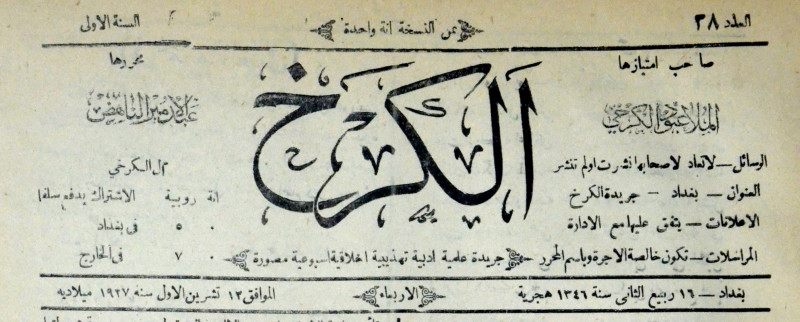 العدد ٢٨
ثمن النسخة انة واحدة
السنة الاولى
صاحب امتيازها
الملا عبود الكرخي
الكرخ
محررها
عبدالامير الناهض
الوسائل — لاتعاد لاصحابها نشرت اولم تنشر
العنوان — بغداد — جريدة الكرخ
الاعلانات — يتفق عليها مع الادارة
المراسلات — تكون خالصة الاجرة وباسم المحرر
جريدة علمية ادبية تهذيبية اخلاقية اسبوعية مصورة
الكرخي
انة روبية الاشتراك يدفع سلفا
٠ ٥ فى بغداد
٠ ٧ فى الخارج
بغداد — ١٦ ربيع الثانى سنة ١٣٤٦ هجرية
الاربعاء
الموافق ١٢ تشرين الاول سنه ١٩٢٧ ميلاديه